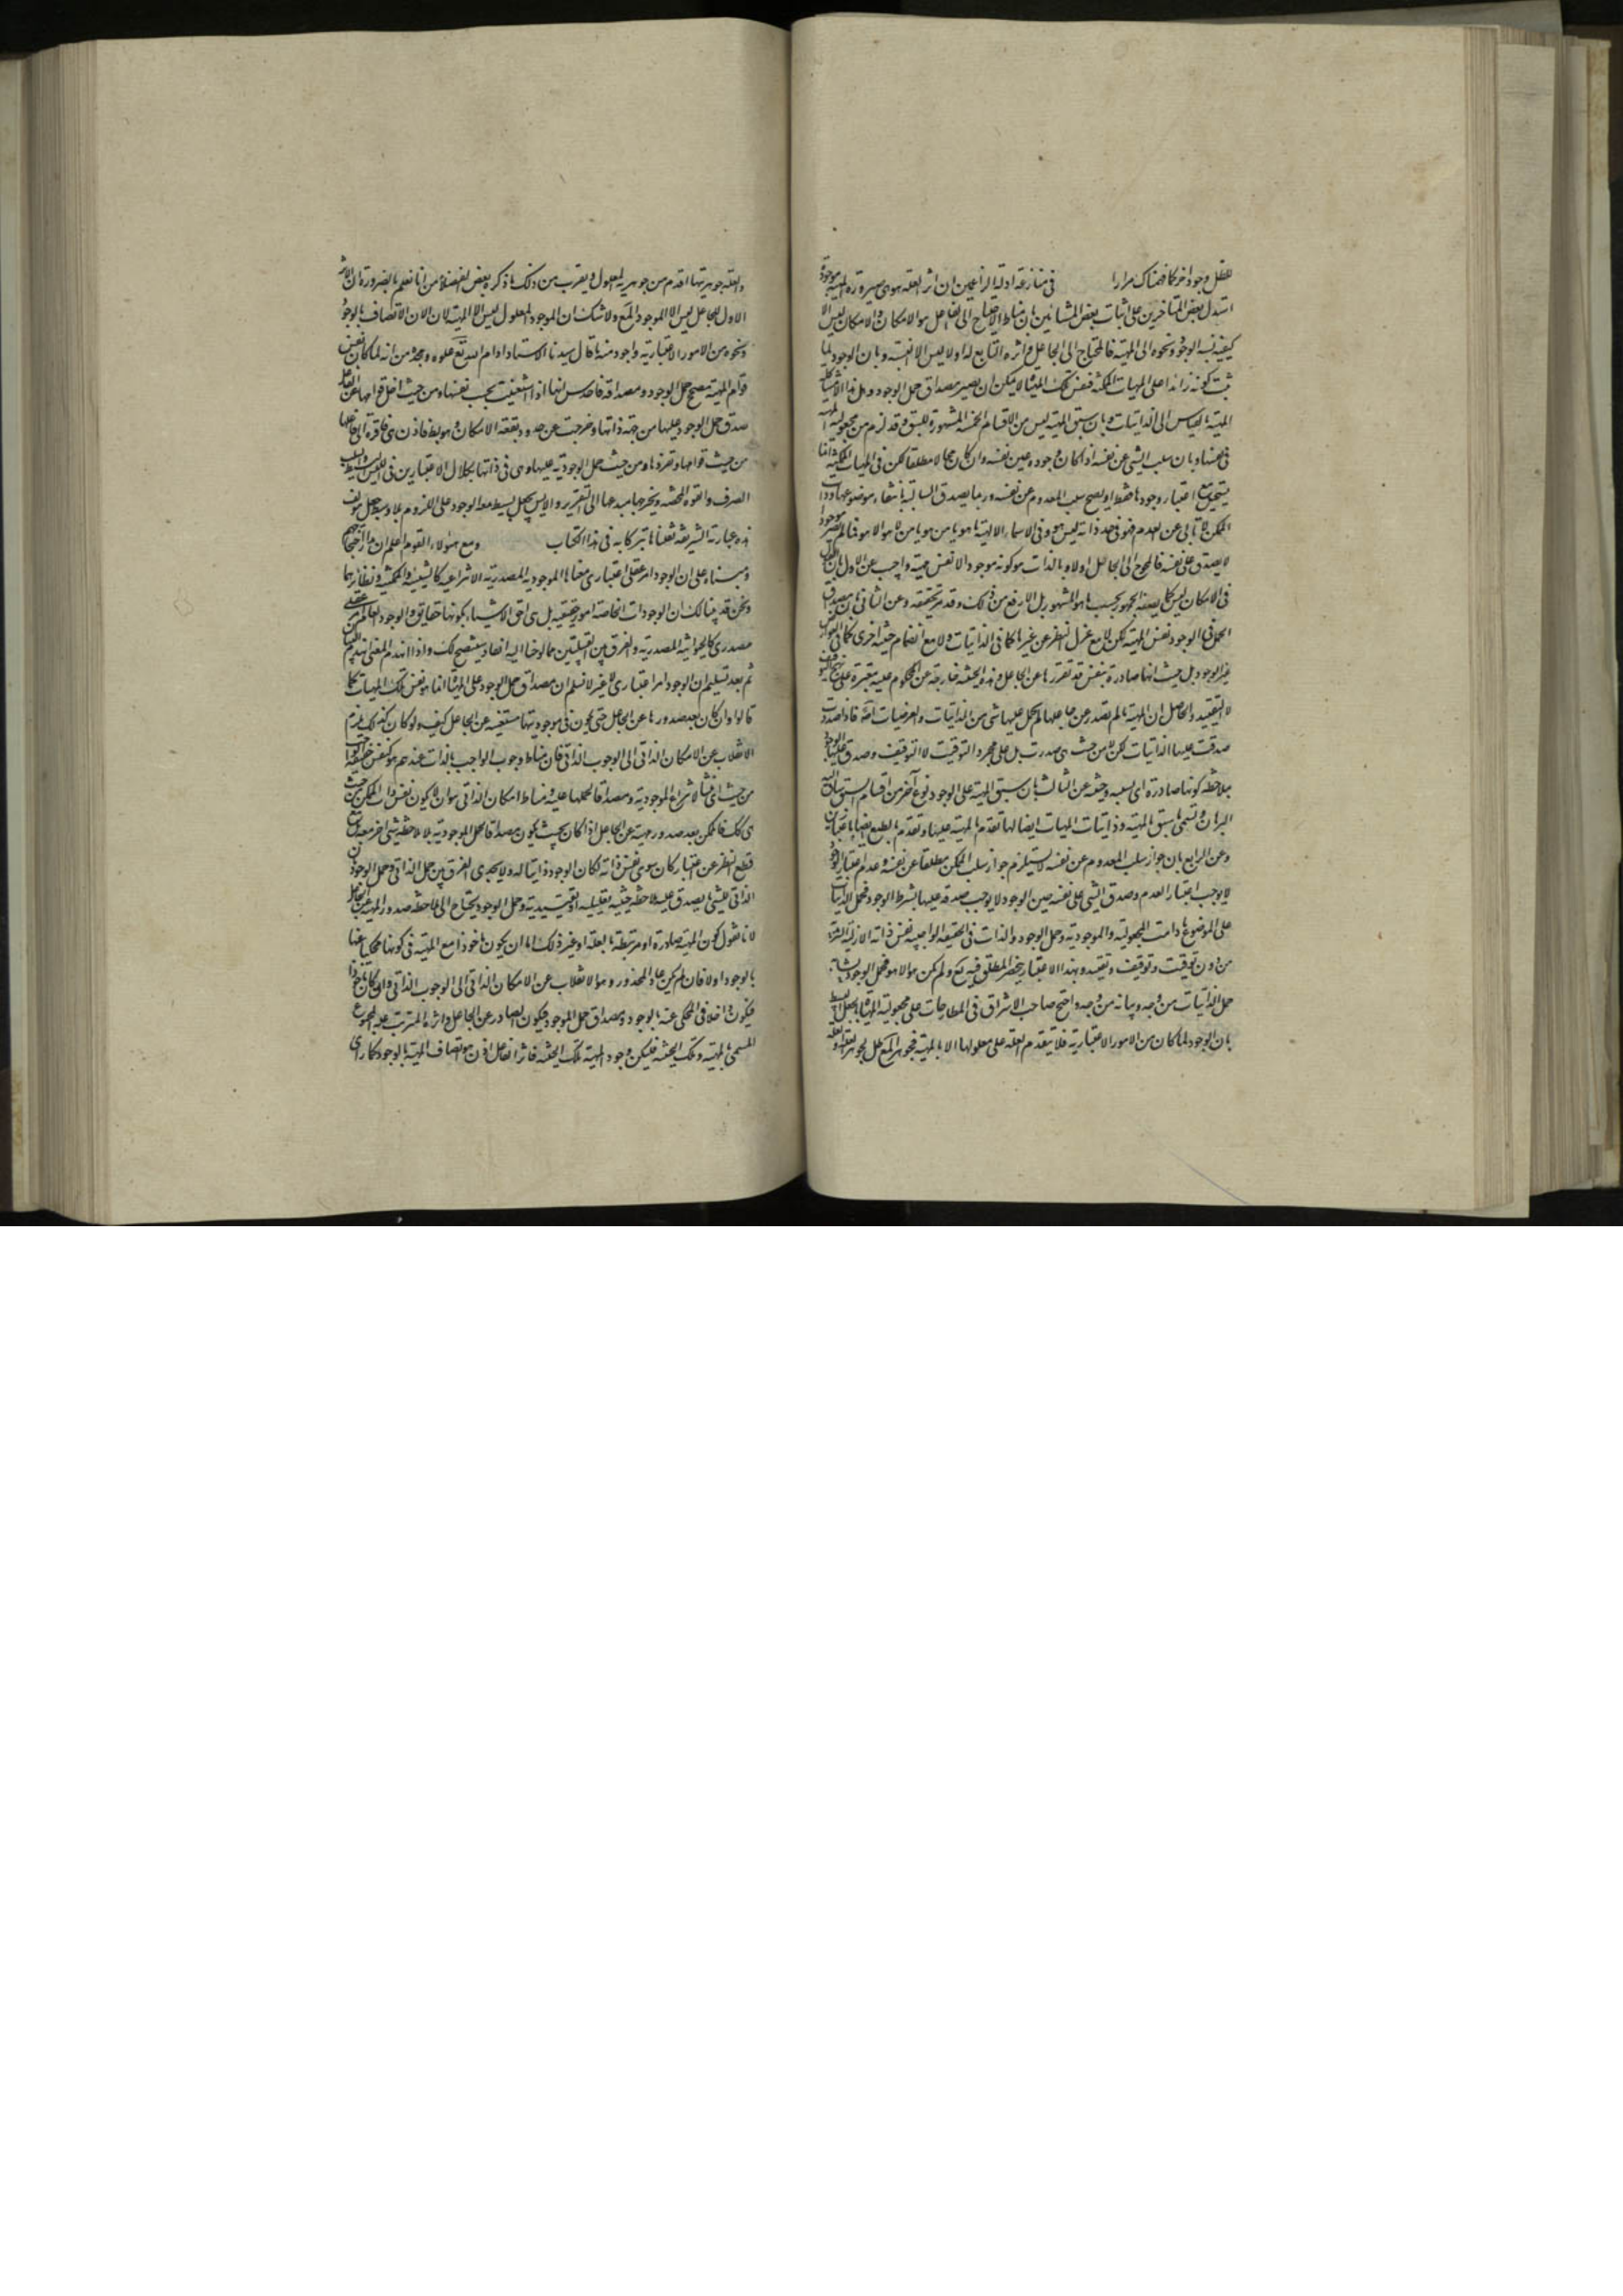 للعقل وجود اخر كما فهمناك مرارا في مناقضة ادلة الزاعمين ان اثر العلة هو صيرورة المهية موجودة
استدل بعض المتاخرين على اثبات بعض المشائين بان مناط الاحتياج الى الفاعل هو الامكان والامكان ليس الا
كيفية نسبة الوجود ونحوه الى المهية فالمحتاج الى الجاعل واثره التابع له اولا ليس الا النسبة وبان الوجود لما
ثبت كونه زائدا على المهيات الممكنة فنفس تلك المهية لا يمكن ان يصير مصداق حمل الوجود
المهية بالقياس الى الذاتيات وبان سبق المهية ليس من الاقسام الخمسة المشهورة للسبق وقد لزم من مجعولية المهية
في نفسها وبان سلب الشئ عن نفسه اذا كان وجوده عين نفسه وان كان محالا مطلقا لكن في المهيات الممكنة انما
يستحيل مع اعتبار وجودها فقط اذ يصح سلب المعدوم عن نفسه وربما يصدق السالبة بانتفاء موضوعها وذات
الممكن لا تابى عن العدم فهو في حد ذاته ليس هو وفي الاسماء الالهية يا هو يا من هو يا من لا هو الا هو فما لم يصر موجودا
لا يصدق على نفسه فالمحوج الى الجاعل اولا وبالذات هو كونه موجودا لا نفس مهيته واجيب عن الاول بان
في الامكان ليس كما يصفه الجمهور بحسب ما هو المشهور بل الارفع من ذلك وقد مر تحقيقه وعن الثاني بان مصداق
الحمل في الوجود نفس المهية لكن لا مع عزل النظر عن غيرها كما في الذاتيات ولا مع انضمام حيثية اخرى كما في العوارض
غير الوجود بل حيث انها صادرة بنفس تقررها عن الجاعل وهذه الحيثية خارجة عن المحكوم عليه معتبرة على
لا التقييد والحاصل ان المهية ما لم تصدر عن جاعلها لم يحمل عليها شئ من الذاتيات والعرضيات اصلا فاذا صدرت
صدقت عليها الذاتيات لكن لا من حيث هي صدرت بل على مجرد التوقيت لا التوقيف وصدق عليها الوجود
بملاحظة كونها صادرة اي بسببه وحيثيته وعن الثالث بان سبق المهية على الوجود نوع آخر من اقسام السبق ساق اليه
البرهان وتسمى بالسبق بالمهية وذاتيات المهيات ايضا لها تقدم بالمهية عليها وتقدم بالطبع ايضا باعتبارين
وعن الرابع بان جواز سلب المعدوم عن نفسه لا يستلزم جواز سلب الممكن مطلقا عن نفسه وعدم اعتبار الوجود
لا يوجب اعتبار العدم وصدق الشئ على نفسه حين الوجود لا يوجب صدقه عليها بشرط الوجود فحمل الذاتيات
على الموضوع ما دامت المجعولية والموجودية وحمل الوجود والذات في الحقيقة الواجبية نفس ذاته الازلية
من دون توقيت وتوقيف وتقييد وبهذا الاعتبار ينحصر المطلق فيه تع ولم يكن هو الا هو فحمل الوجود يشابه
حمل الذاتيات من وجه ويباينه من وجه واحتج صاحب الاشراق في المطارحات على مجعولية المهية بالجعل البسيط
بان الوجود لما كان من الامور الاعتبارية فلا يتقدم العلة على معلولها الا بالمهية فجوهر المعلول ظل لجوهر العلة
والعلة جوهريتها اقدم من جوهرية المعلول ويقرب من ذلك ما ذكره بعض الفضلاء من انا نعلم بالضرورة ان الاثر
الاول للجاعل ليس الا الموجود المع ولا شك ان الموجود المعلول ليس الا المهية لان الاتصاف بالوجود
ونحوه من الامور الاعتبارية واجود منه ما قال سيدنا الاستاد ادام الله تع علوه ومجده من انه لما كان نفس
قوام المهية مصحح حمل الوجود ومصداقه فاحدس انها اذا استغنت بحسب نفسها ومن حيث اصل قوامها عن الفاعل
صدق حمل الوجود عليها من جهة ذاتها وخرجت عن حدود بقعة الامكان وهو بط فاذن هي فاقرة الى فاعلها
من حيث قوامها وتقررها ومن حيث حمل الوجودية عليها وهي في ذاتها بكلا الاعتبارين في الليس البسيط والسلب
الصرف والقوة المحضة ويخرجها مبدعها الى التقرير والايس بجعل بسيط معه الوجود على اللزوم بلا وسط جعل مؤلف
هذه عبارته الشريفة نقلناها تبركا به في هذا الكتاب ومع هؤلاء القوم اعلم ان مدار احتجاجهم
ومبناه على ان الوجود امر عقلي اعتباري معناه الموجودية المصدرية الانتزاعية كالشيئية والممكنية ونظائرهما
ونحن قد بينا لك ان الوجودات الخاصة امور حقيقية بل هي احق الاشياء بكونها حقايق والوجود العام امر عقلي
مصدري كالحيوانية المصدرية والفرق بين القبيلتين مما لوحنا اليه انفا وسيتضح لك واذا انهدم المبنى انهدم البناء
ثم بعد تسليم ان الوجود امر اعتباري لا غير لا نسلم ان مصداق حمل الوجود على المهية انما هو نفس تلك المهيات كما
قالوا وان كان بعد صدورها عن الجاعل حتى يكون في موجوديتها مستغنية عن الجاعل كيف ولو كان كذلك يلزم
الانقلاب عن الامكان الذاتي الى الوجوب الذاتي فان مناط وجوب الواجب بالذات عندهم هو كون نفس حقيقة الواجب
من حيث هي منشأ لانتزاع الموجودية ومصداقا لحملها عليه ومناط امكان الذاتي هو ان لا يكون نفس ذات الممكن من حيث
هي كك فالممكن بعد صدور مهيته عن الجاعل اذا كان بحيث يكون مصداقا لحمل الموجودية بلا ملاحظة شئ اخر معه مع
قطع النظر عن اعتبار كان سوى نفس ذاته لكان الوجود ذاتيا له ولا يجدي الفرق بين حمل الذاتي وحمل الوجود بان
الذاتي للشئ ما يصدق عليه بلا ملاحظة حيثية تعليلية او تقييدية وحمل الوجود يحتاج الى ملاحظة صدور المهية عن الجاعل
لانا نقول كون المهية صادرة او مرتبطة بالعلة او غير ذلك اما ان يكون ماخوذا مع المهية في كونها محكيا عنها
بالوجود اولا فان لم يكن عاد المحذور وهو الانقلاب عن الامكان الذاتي الى الوجوب الذاتي وان كان ماخوذا
فيكون داخلا في المحكي عنه بالوجود ومصداق حمل الموجود فيكون الصادر عن الجاعل واثره المترتب عليه المجموع
المسمى بالمهية وتلك الحيثية فليكن وجود المهية تلك الحيثية فاثر الفاعل اذن هو اتصاف المهية بالوجود كما راى